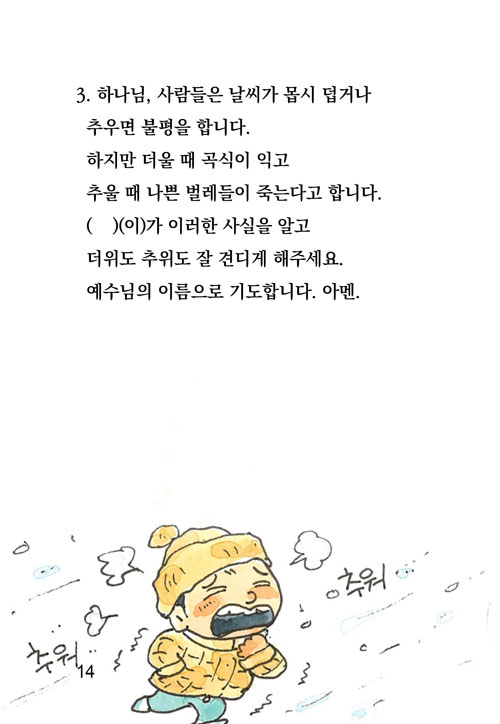 3. 하나님, 사람들은 날씨가 몹시 덥거나
추우면 불평을 합니다.
하지만 더울 때 곡식이 익고
추울 때 나쁜 벌레들이 죽는다고 합니다.
(    )(이)가 이러한 사실을 알고
더위도 추위도 잘 견디게 해주세요.
예수님의 이름으로 기도합니다. 아멘.
추워
추워
14